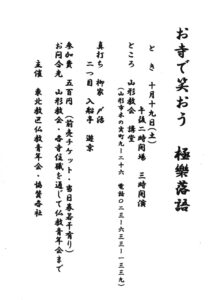 お寺で笑おう　極樂落語
とき　十月十九日（土）
午后二時開場　三時開演
ところ　山形教会　講堂
（山形市木の実町九ー二六　電話〇二三ー六三三ー一三三九）
真打ち　柳家
二つ目　入船亭　遊京
参加費　五百円（前売チケット・当日券若干有り）
お問合先　山形教会・各寺住職を通じて仏教青年会まで
主催　東北教区仏教青年会・協賛各社